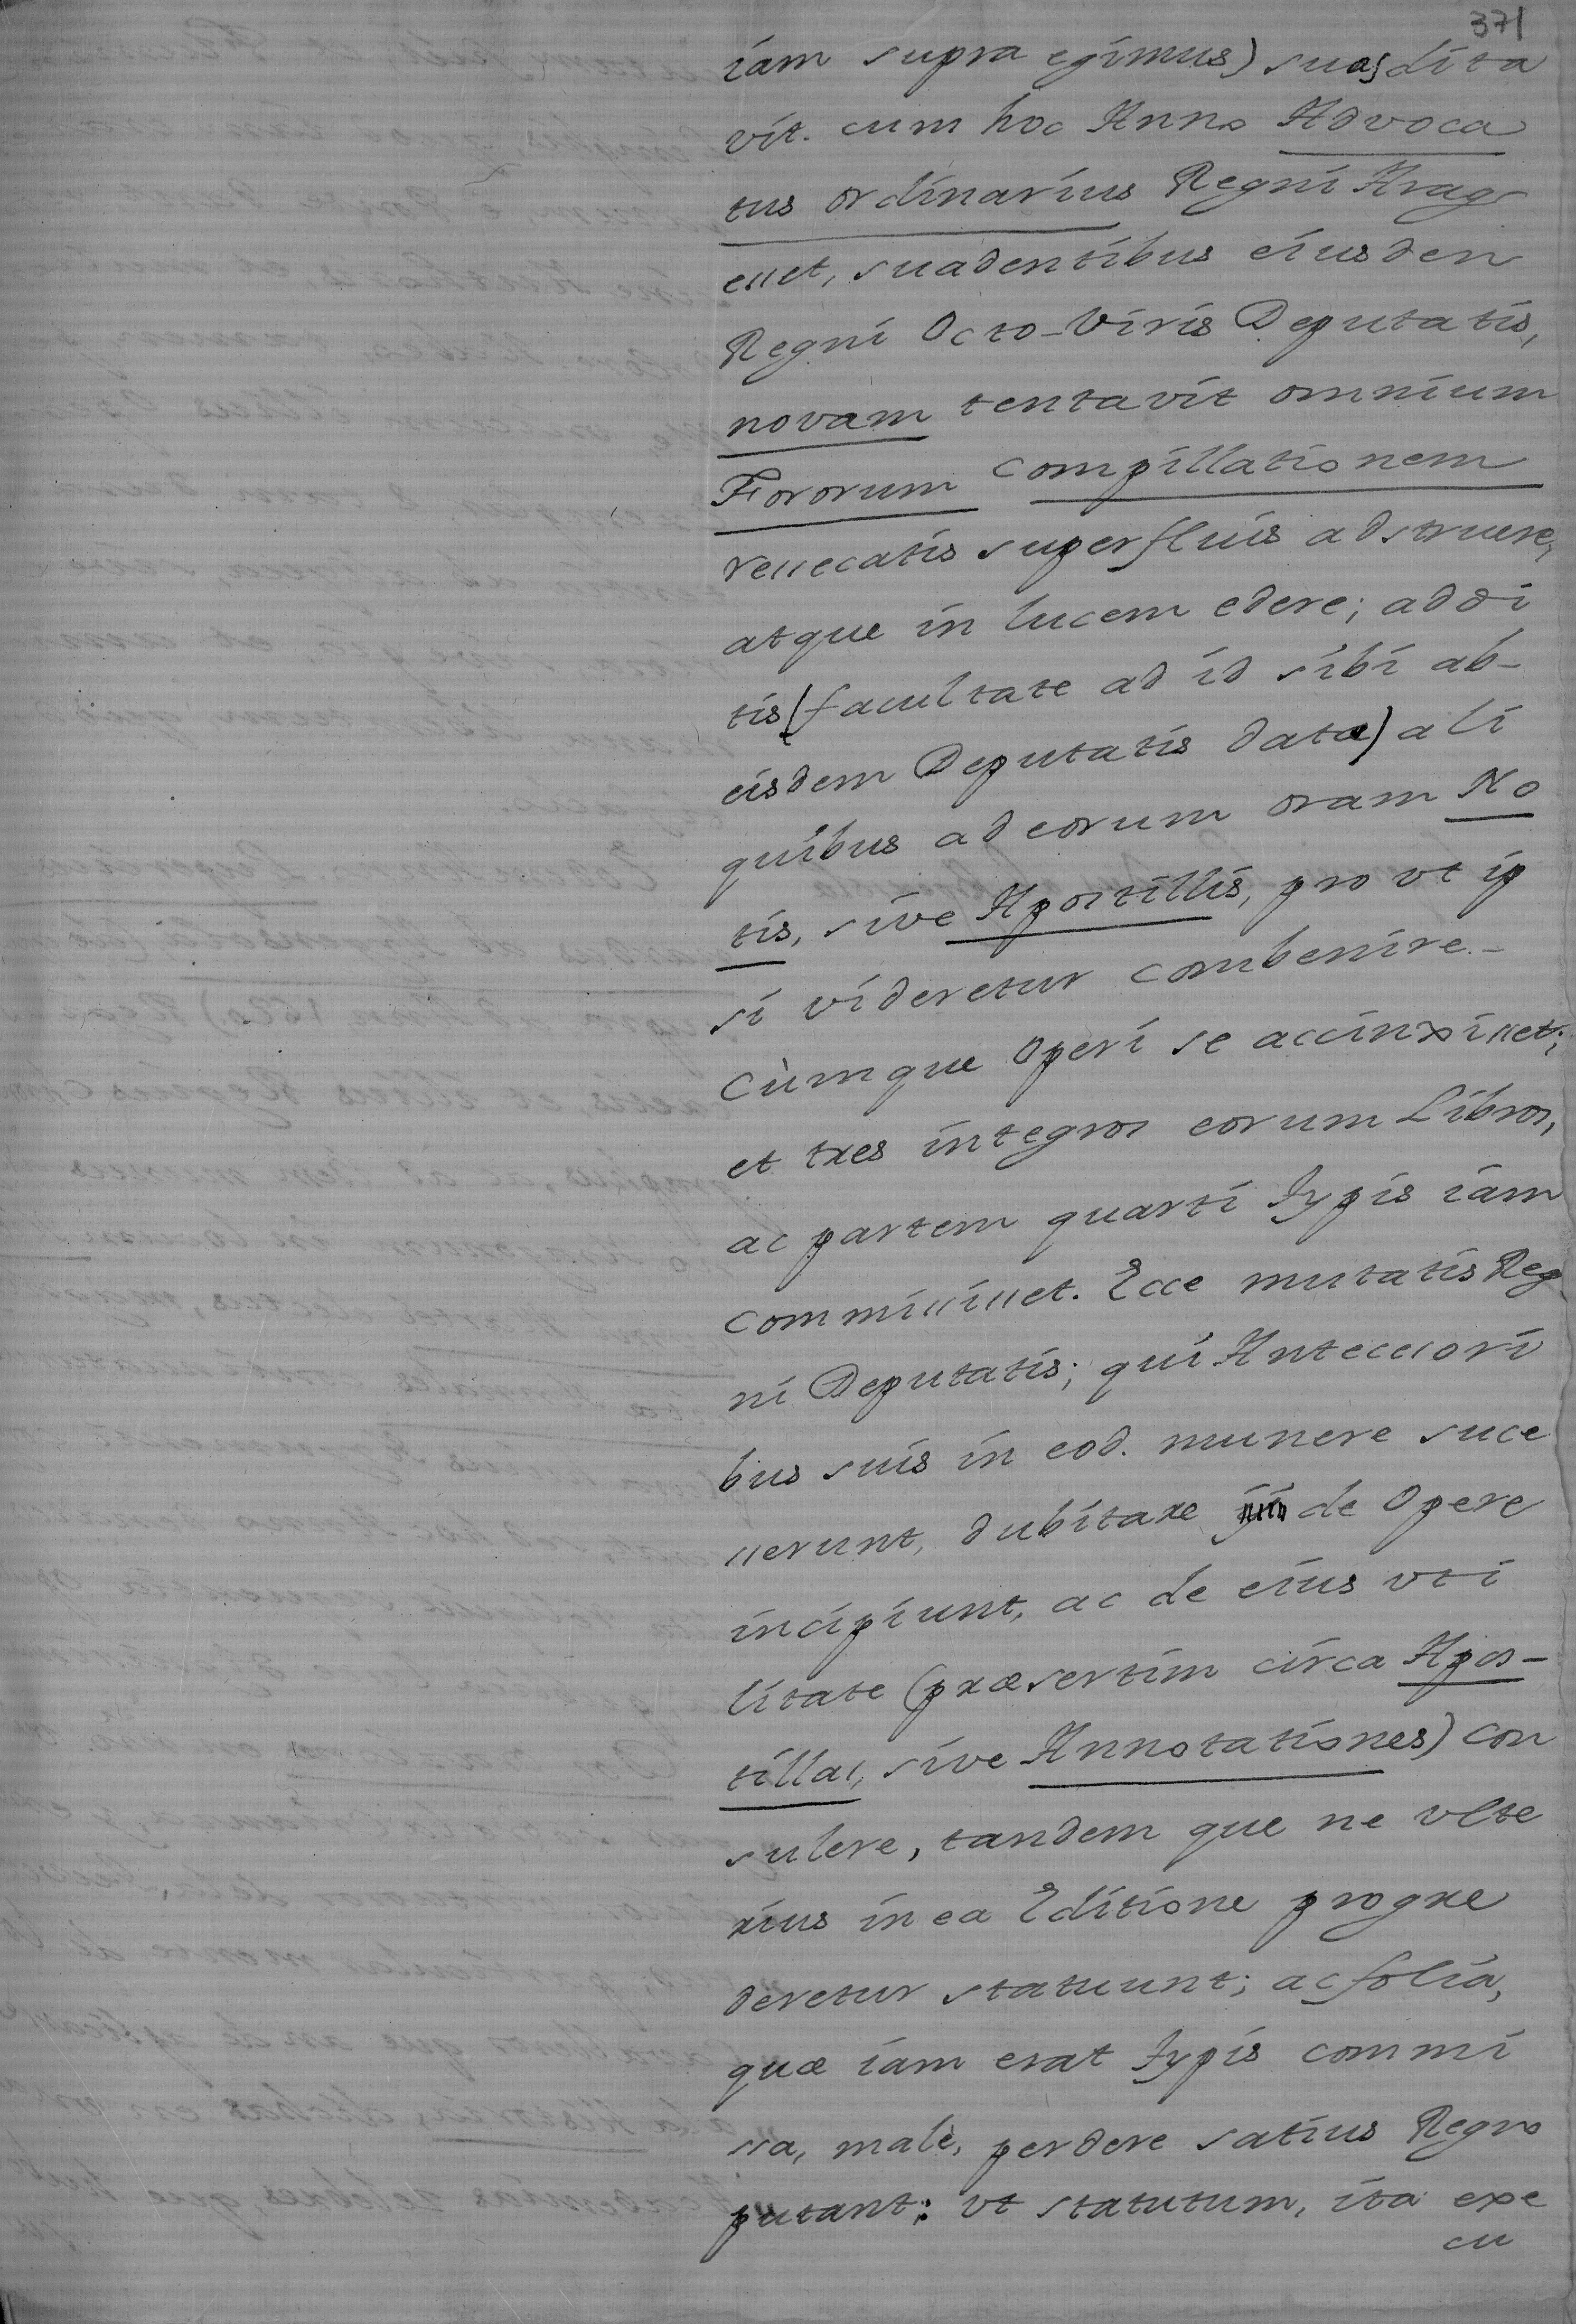 371
iam supra egimus) suas dita
vit. cum hoc Anno Advoca
tus ordinarius Regni Arag
esset, suadentibus eiusdem
Regni Octo-Viris Deputatis,
novam tentavit omnium
Fororum compillationem
ressecatis superfluis adstruere,
atque in lucem edere; addi
tis (facultate ad id sibi ab-
eisdem Deputatis data) ali
quibus ad eorum oram No
tis, sive Apostillis, pro vt ip
si videretur combenire.-
Cùmque Operi se accinxisset;
et tres integros eorum Libros,
ac partem quarti typis iam
commisisset. Ecce mutatis Reg
ni Deputatis; qui Antecessori
bus suis in eod. munere suce
sserunt, dubitare de Opere
incipiunt, ac de eius vti
litate (præsertim circa Apos-
tillas, sive Annotationes) con
sulere, tandem que ne vlte
rius in ea Editione progre
deretur statuunt; ac folia,
quæ iam erat typis commi
ssa, malè, perdere satius Regno
putant: vt statutum, ita exe
cu